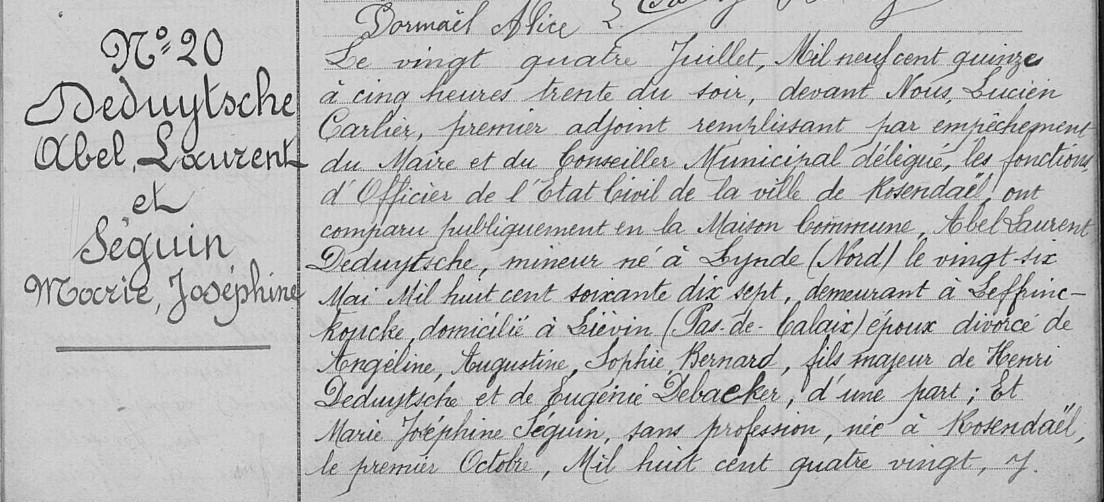 N° 20
Deduytsche
Abel, Laurent
et
Séguin
Marie, Joséphine
Dormaël Alice
Le vingt quatre Juillet, Mil neuf cent quinze
à cinq heures trente du soir, devant Nous, Lucien
Carlier, premier adjoint remplissant par empêchement
du Maire et du Conseiller Municipal délégué, les fonctions
d'Officier de l'Etat Civil de la ville de Rosendaël, ont
comparu publiquement en la Maison Commune, Abel Laurent
Deduytsche, mineur né à Lynde (Nord) le vingt-six
Mai Mil huit cent soixante dix sept, demeurant à Leffrinc-
koucke, domicilié à Liévin (Pas-de-Calaix) époux divorcé de
Angéline, Augustine, Sophie, Bernard, fils majeur de Henri
Deduytsche et de Eugénie Debacker, d'une part; Et
Marie Joséphine Séguin, sans profession, née à Rosendaël,
le premier Octobre, Mil huit cent quatre vingt, y